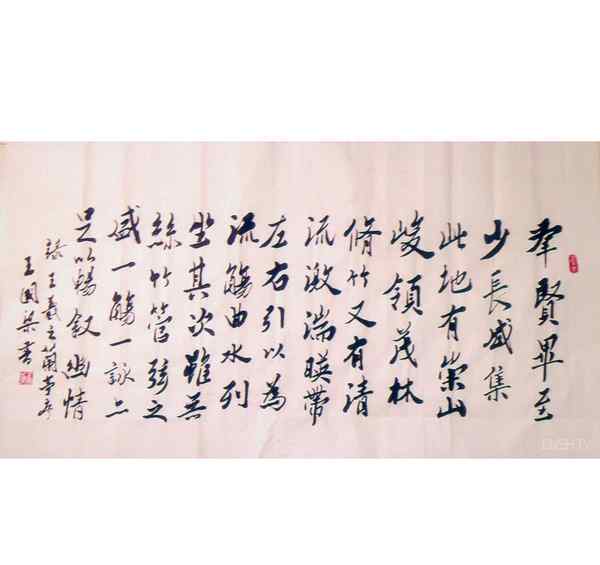 羣賢畢至
少長咸集
此地有崇山
峻領茂林
脩竹又有清
流激湍暎帶
左右引以為
流觴曲水列
坐其次雖無
絲竹管弦之
盛一觴一詠亦
足以暢敘幽情
王羲之蘭亭序
王國梁書